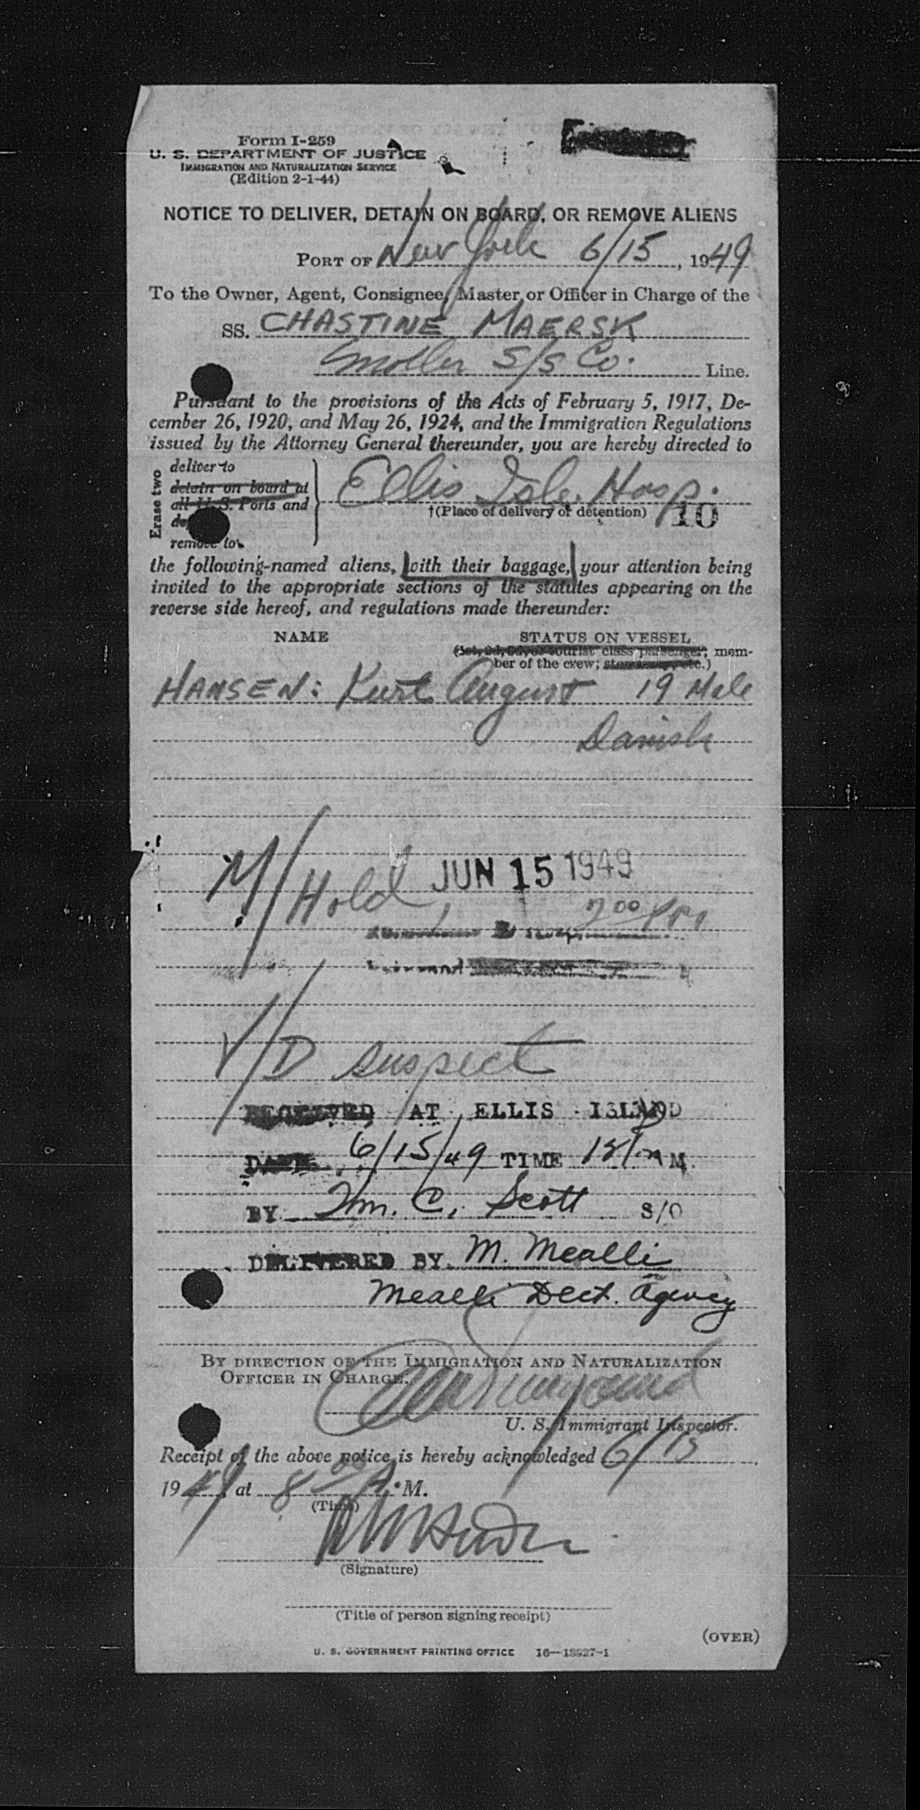 Form I-259
U. S. DEPARTMENT OF JUSTICE
IMMIGRATION AND NATURALIZATION SERVICE
(Edition 2-1-44)
NOTICE TO DELIVER, DETAIN ON BOARD, OR REMOVE ALIENS
PORT OF New York 6/15, 1949
To the Owner, Agent, Consignee, Master or Officer in Charge of the
SS. CHASTINE MAERSK
Moller S/S Co. Line.
Pursuant to the provisions of the Acts of February 5, 1917, De-
cember 26, 1920, and May 26, 1924, and the Immigration Regulations
issued by the Attorney General thereunder, you are hereby directed to
Erase two
deliver to
detain on board at
all U. S. Ports and
remove to
Ellis Isle. Hosp.
†(Place of delivery or detention)
10
the following-named aliens, with their baggage, your attention being
invited to the appropriate sections of the statutes appearing on the
reverse side hereof, and regulations made thereunder:
NAME STATUS ON VESSEL
(1st, 2d, 3d, or tourist class passenger; mem-
ber of the crew; stowaway, etc.)
HANSEN: Kurt August 19 Male
Danish
M/Hold JUN 15 1949
7 00 PM
V/D suspect
RECEIVED AT ELLIS ISLAND
DATE 6/15/49 TIME M
BY Wm. C. Scott S/O
DELIVERED BY M. Mealli
Mealli Dect. Agency
BY DIRECTION OF THE IMMIGRATION AND NATURALIZATION
OFFICER IN CHARGE.
U. S. Immigrant Inspector.
Receipt of the above notice is hereby acknowledged 6/15
1949, at 8 00 A. M.
(Time)
(Signature)
(Title of person signing receipt)
(OVER)
U. S. GOVERNMENT PRINTING OFFICE 16—18927-1